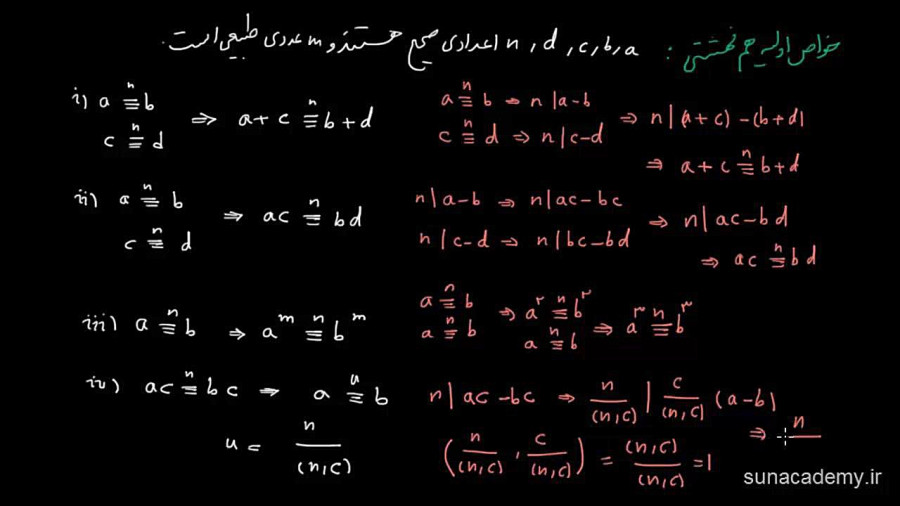 خواص اولیه هم نهشتی : a, b, c, d, n اعدادی صحیح هستند و m عددی طبیعی است.
i) a ≡ⁿ b
c ≡ⁿ d
⇒ a + c ≡ⁿ b + d
a ≡ⁿ b ⇒ n | a-b
c ≡ⁿ d ⇒ n | c-d
⇒ n | (a+c) - (b+d)
⇒ a + c ≡ⁿ b + d
ii) a ≡ⁿ b
c ≡ⁿ d
⇒ ac ≡ⁿ bd
n | a-b ⇒ n | ac-bc
n | c-d ⇒ n | bc-bd
⇒ n | ac-bd
⇒ ac ≡ⁿ bd
iii) a ≡ⁿ b ⇒ a^m ≡ⁿ b^m
a ≡ⁿ b
a ≡ⁿ b
⇒ a^۲ ≡ⁿ b^۲
a ≡ⁿ b
⇒ a^۳ ≡ⁿ b^۳
iv) ac ≡ⁿ bc ⇒ a ≡ᵘ b
u = n/(n,c)
n | ac-bc ⇒ n/(n,c) | c/(n,c) (a-b)
(n/(n,c) , c/(n,c)) = (n,c)/(n,c) = 1
⇒ n
sunacademy.ir